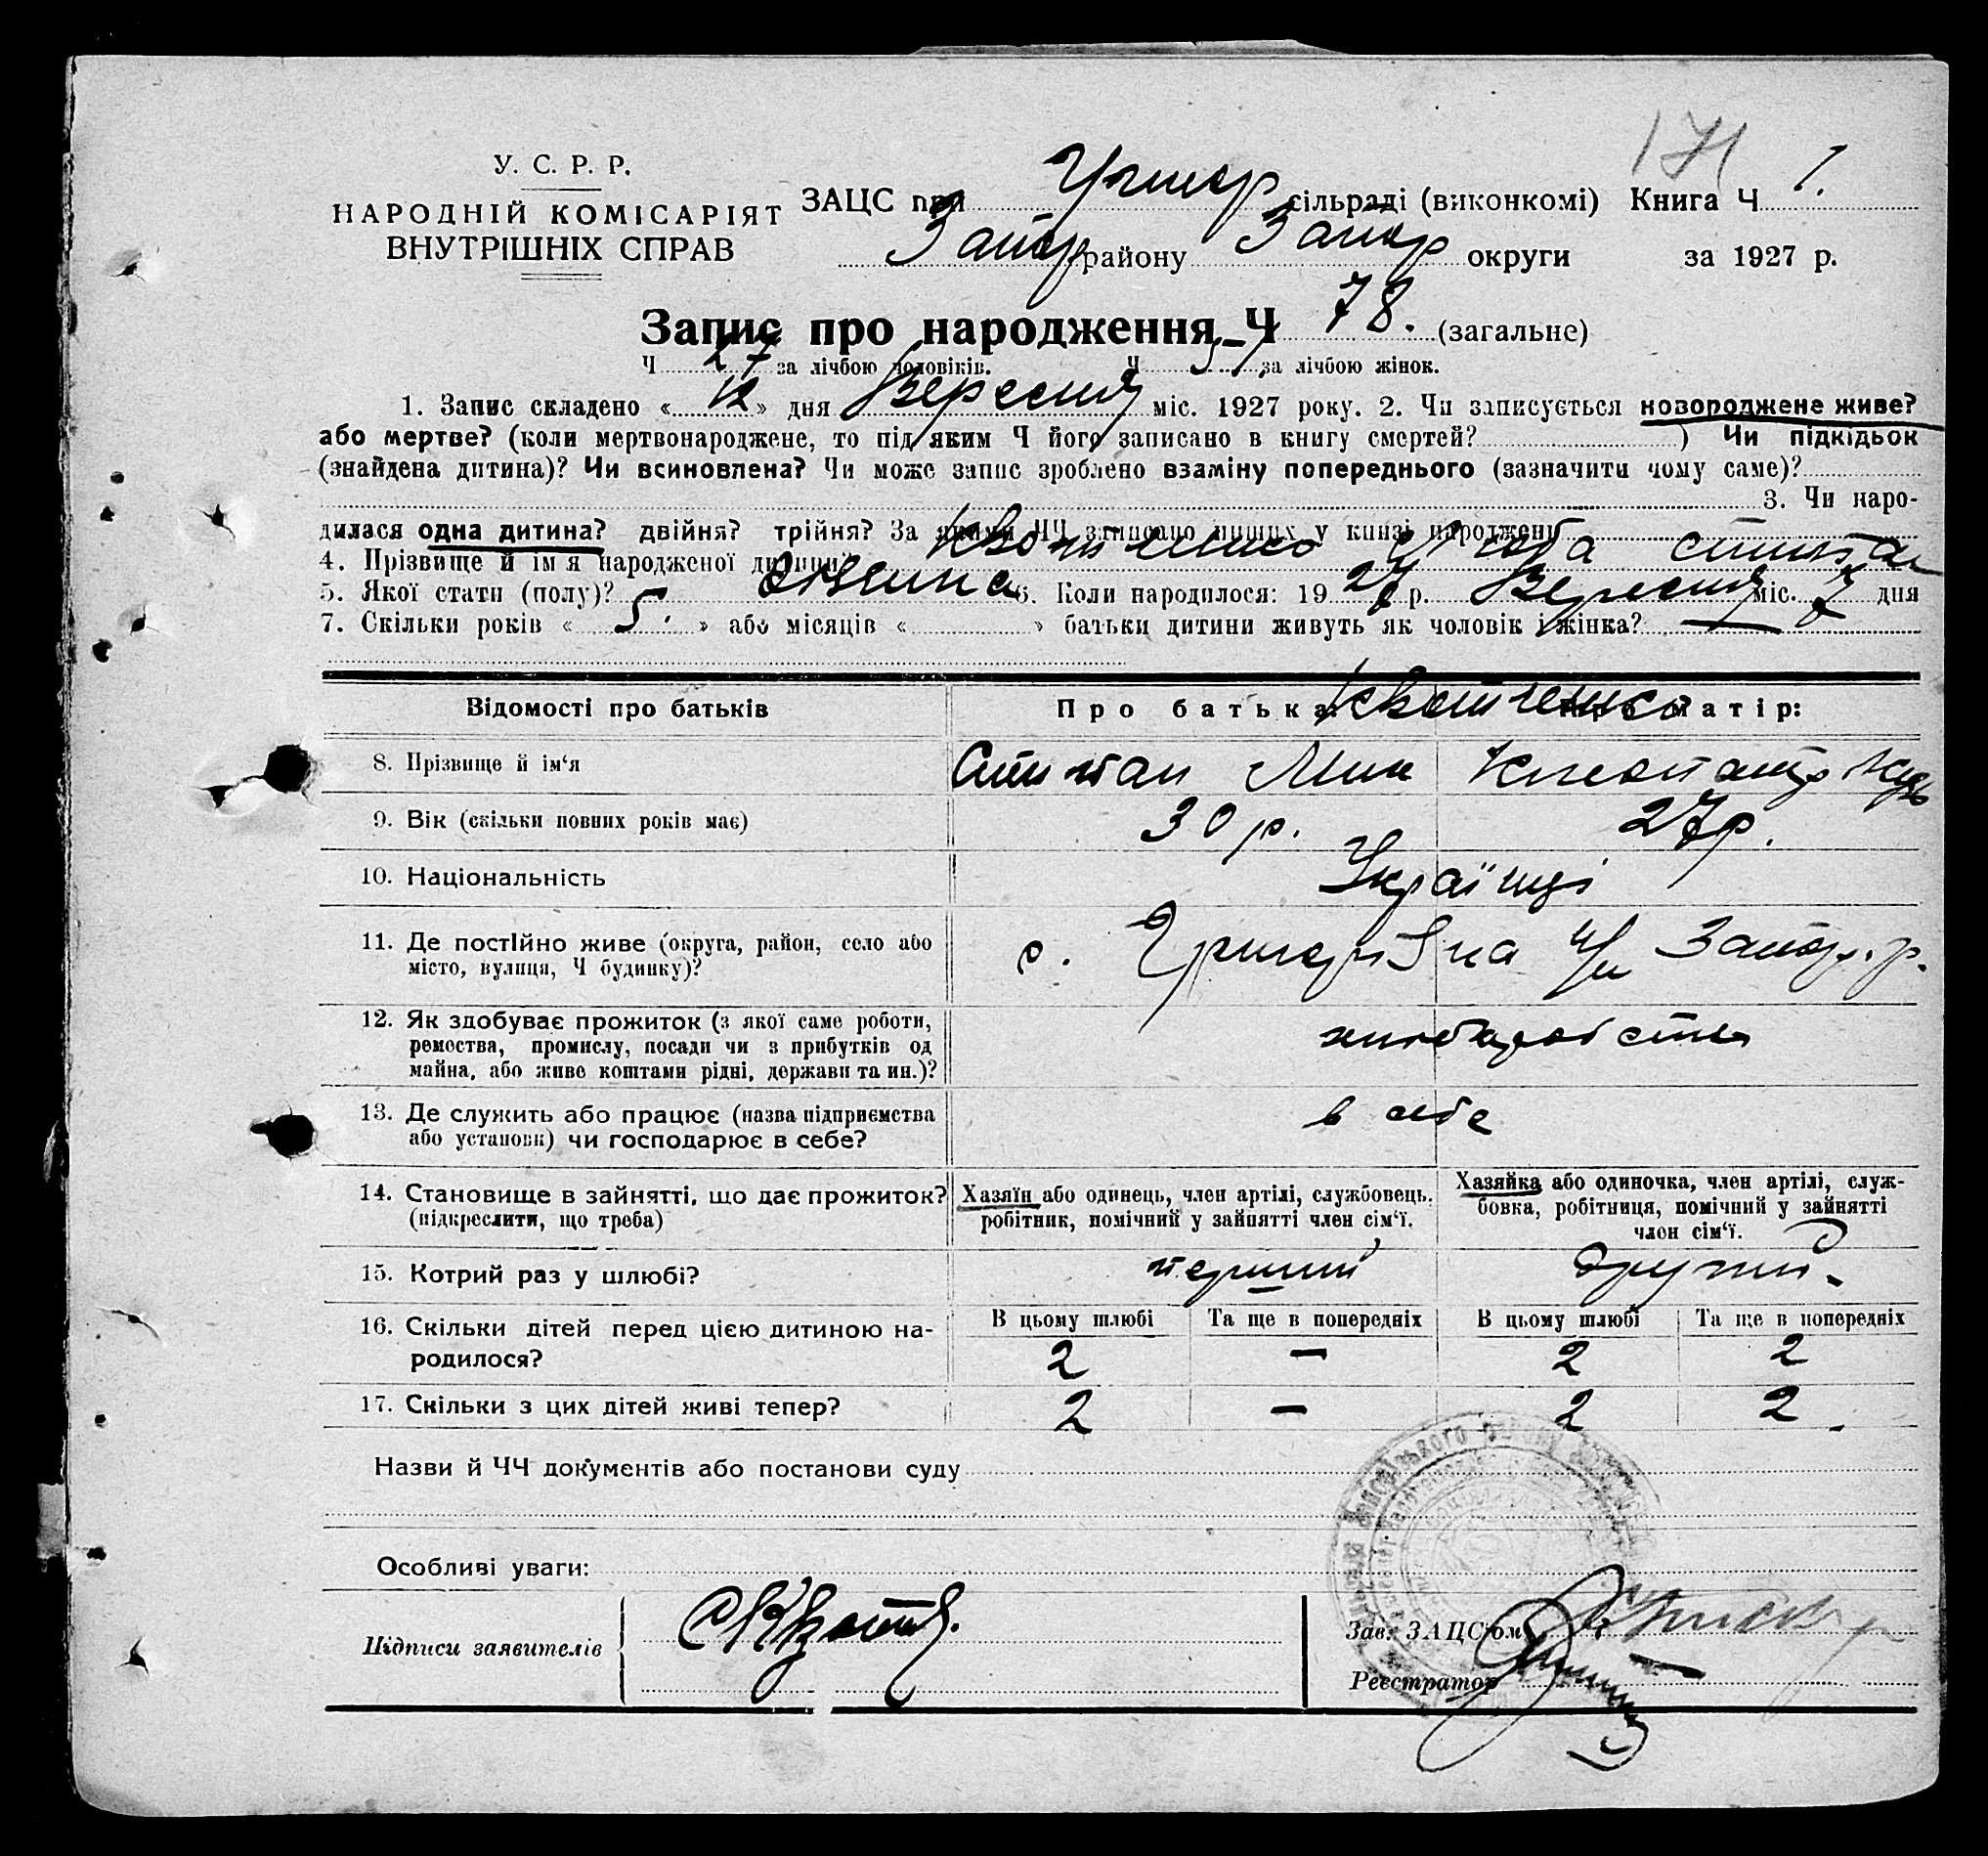 171
У. С. Р. Р.
НАРОДНІЙ КОМІСАРІЯТ
ВНУТРІШНІХ СПРАВ
ЗАЦС при Григор сільраді (виконкомі) Книга Ч 1.
Запор району Запор округи за 1927 р.
Запис про народження Ч 78. (загальне)
Ч 27 за лічбою чоловіків. Ч 51 за лічбою жінок.
1. Запис складено « 12 » дня Вересня міс. 1927 року. 2. Чи записується новороджене живе?
або мертве? (коли мертвонароджене, то під яким Ч його записано в книгу смертей? ) Чи підкідьок
(знайдена дитина)? Чи всиновлена? Чи може запис зроблено взаміну попереднього (зазначити чому саме)?
3. Чи наро-
дилася одна дитина? двійня? трійня? За якими ЧЧ записано инших у книзі народжень
4. Прізвище й ім'я народженої дитини
5. Якої стати (полу)? 6. Коли народилося: 19 27 р. Вересня міс. 7 дня
7. Скільки років « 5. » або місяців « » батьки дитини живуть як чоловік і жінка? —
Відомості про батьків Про батька: Про матір:
Квітченко
8. Прізвище й ім'я Степан Мик Клеопатр
9. Вік (скільки повних років має) 30 р. 27 р.
10. Національність Українці
11. Де постІйно живе (округа, район, село або
місто, вулиця, Ч будинку)?
с. Григорівка Запор. р.
12. Як здобуває прожиток (з якої саме роботи,
ремества, промислу, посади чи з прибутків од
майна, або живе коштами рідні, держави та ин.)?
хліборобство
13. Де служить або працює (назва підприємства
або установи) чи господарює в себе?
в себе
14. Становище в зайнятті, що дає прожиток?
(підкреслити, що треба)
Хазяїн або одинець, член артілі, службовець,
робітник, помічний у зайнятті член сім'ї.
Хазяйка або одиночка, член артілі, служ-
бовка, робітниця, помічний у зайнятті
член сім'ї.
15. Котрий раз у шлюбі? перший другий
16. Скільки дітей перед цією дитиною на-
родилося?
В цьому шлюбі Та ще в попередніх В цьому шлюбі Та ще в попередніх
2 — 2 2
17. Скільки з цих дітей живі тепер? 2 — 2 2
Назви й ЧЧ документів або постанови суду
Особливі уваги:
Підписи заявителів
Зав. ЗАЦС'ом
Реєстратор